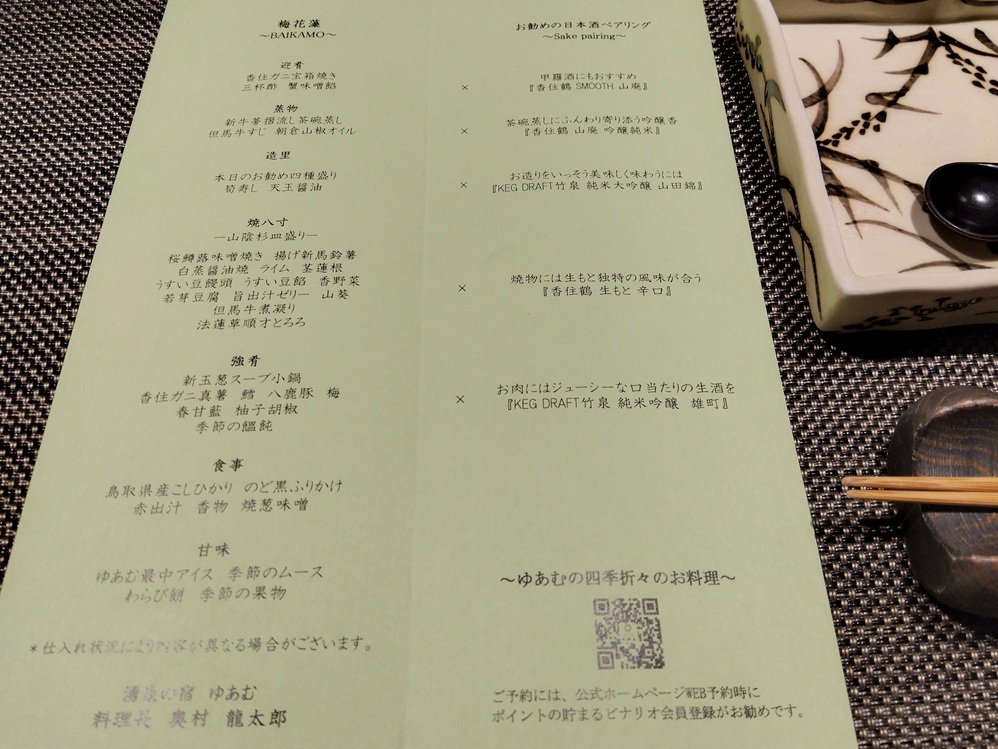 梅花藻
～BAIKAMO～
迎肴
香住ガニ宝箱焼き
三杯酢 蟹味噌餡
蒸物
新牛蒡摺流し茶碗蒸し
但馬牛すじ 朝倉山椒オイル
造里
本日のお勧め四種盛り
筍寿し 天王醤油
焼八寸
―山陰杉皿盛り―
桜鱒蕗味噌焼き 揚げ新馬鈴薯
白蒸醤油焼 ライム 茎蓮根
うすい豆饅頭 うすい豆餡 香野菜
若芽豆腐 旨出汁ゼリー 山葵
但馬牛煮凝り
法蓮草順才とろろ
強肴
新玉葱スープ小鍋
香住ガニ真薯 鱈 八鹿豚 梅
春甘藍 柚子胡椒
季節の饂飩
食事
鳥取県産こしひかり のど黒ふりかけ
赤出汁 香物 焼葱味噌
甘味
ゆあむ最中アイス 季節のムース
わらび餅 季節の果物
＊仕入れ状況により内容が異なる場合がございます。
湯後の宿 ゆあむ
料理長 奥村 龍太郎
お勧めの日本酒ペアリング
～Sake pairing～
甲羅酒にもおすすめ
× 『香住鶴 SMOOTH 山廃』
茶碗蒸しにふんわり寄り添う吟醸香
× 『香住鶴 山廃 吟醸純米』
お造りをいっそう美味しく味わうには
× 『KEG DRAFT竹泉 純米大吟醸 山田錦』
焼物には生もと独特の風味が合う
× 『香住鶴 生もと 辛口』
お肉にはジューシーな口当たりの生酒を
× 『KEG DRAFT竹泉 純米吟醸 雄町』
～ゆあむの四季折々のお料理～
ご予約には、公式ホームページWEB予約時に
ポイントの貯まるピナリオ会員登録がお勧めです。